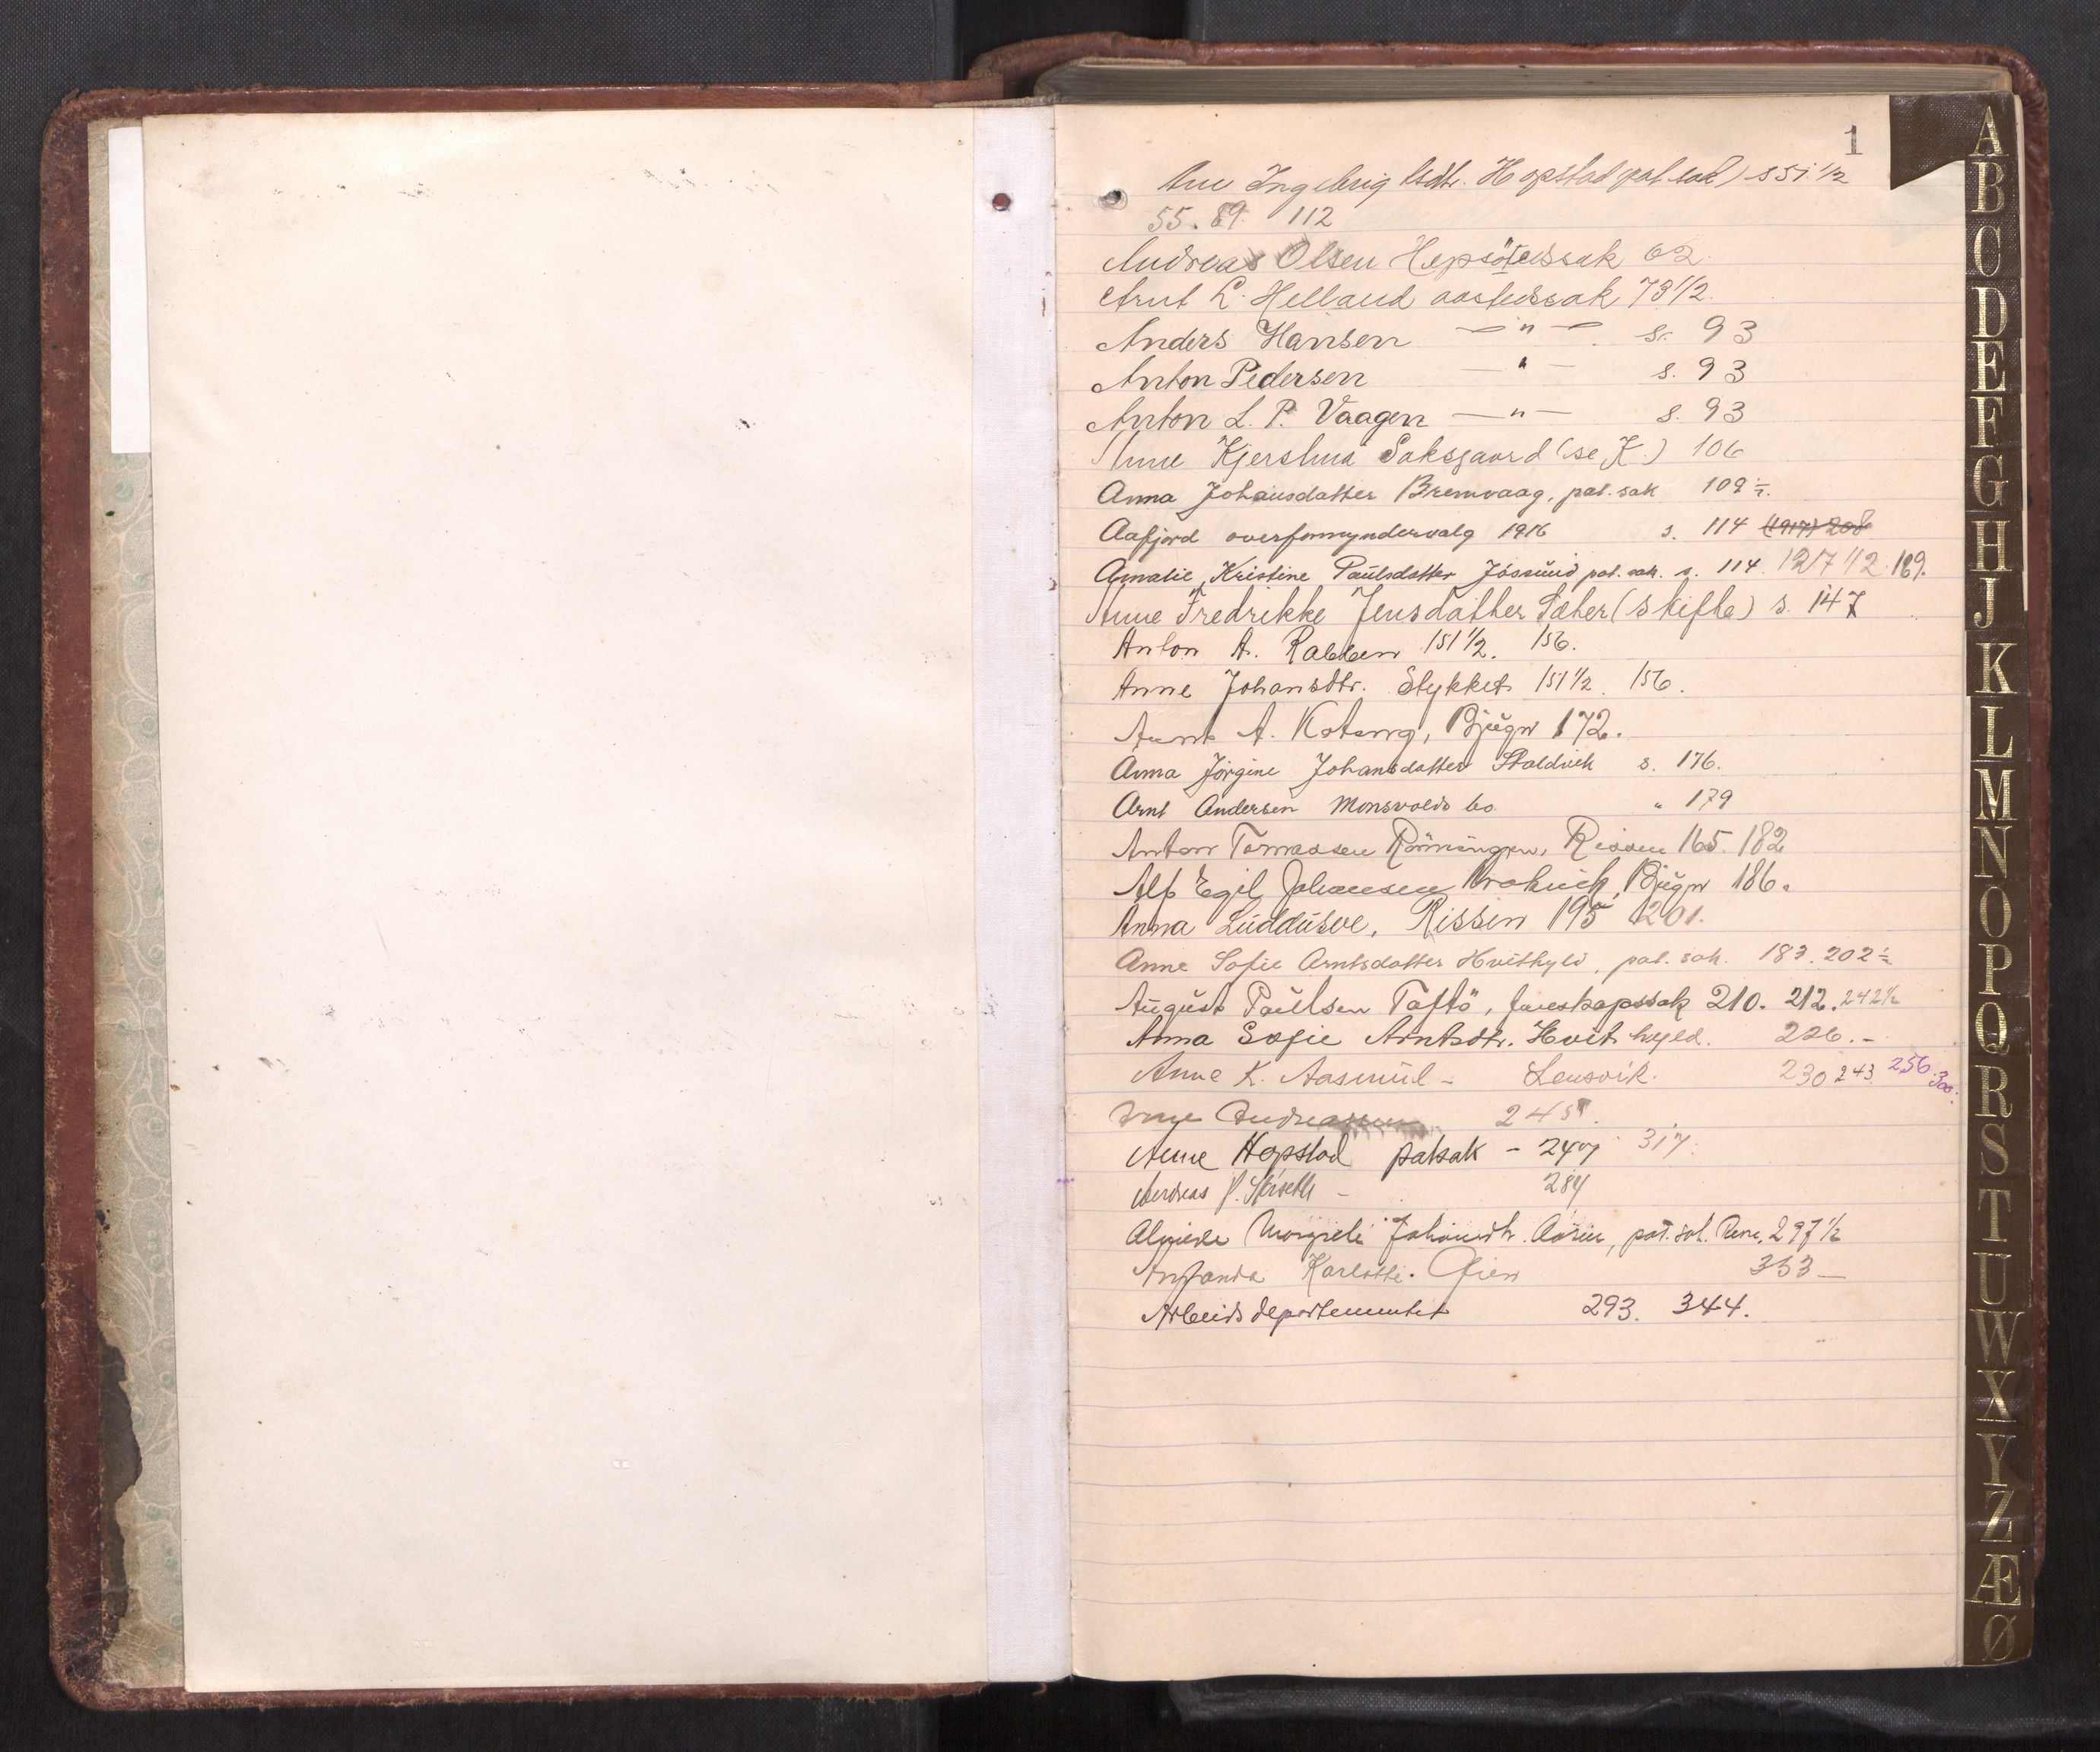 1
Ane Ingebrig Hopstad pat. sak) s 51 1/2
55. 89. 112
Andreas Olsen 62
Arnt L. Helland aastedssak 73 1/2.
Anders Hansen — " — s. 93
Anton Pedersen — " — s. 93
Anton L. P. Vaagen — " — s. 93
Anne Saksgaard (se K.) 106
Anna Johansdatter Bremvaag, pat. sak 109 1/2.
Aafjord overformyndervalg 1916 s. 114 (1917) 208
Amalie Kristine Paulsdatter Jøssund pat. sak. s. 114. 127 1/2. 169.
Anne Fredrikke Jensdatter Sæter (skifte) s. 147
Anton A. Rabben 151 1/2. 156.
Anne Johansdtr. Stykket 151 1/2. 156.
A. Bjugn 172.
Anna Jörgine Johansdatter s. 176.
Arnt Andersen Monsvolds bo. " 179
Anton Tomassen Rönningen, Rissen 165. 182
Alf Egil Johansen Bjugn 186.
Anna Rissen 195 201.
Anne Sofie Arntsdatter Hvithyld, pat. sak. 183. 202 1/2
August Paulsen Taftö, farskapssak 210. 212. 242 1/2
Anna Sofie Arntsdtr. Hvithyld. 226. -
Anne K. Aasmul - Lensvik. 230 243 256. 300.
Andreassen 245.
Anne Hopstad patsak - 247 317.
Andreas 284
pat. sak. 297 1/2
Karlotte. 353 —
Arbeidsdepartementet 293. 344.
A
B
C
D
E
F
G
H
J
K
L
M
N
O
P
Q
R
S
T
U
W
X
Y
Z
Æ
Ø